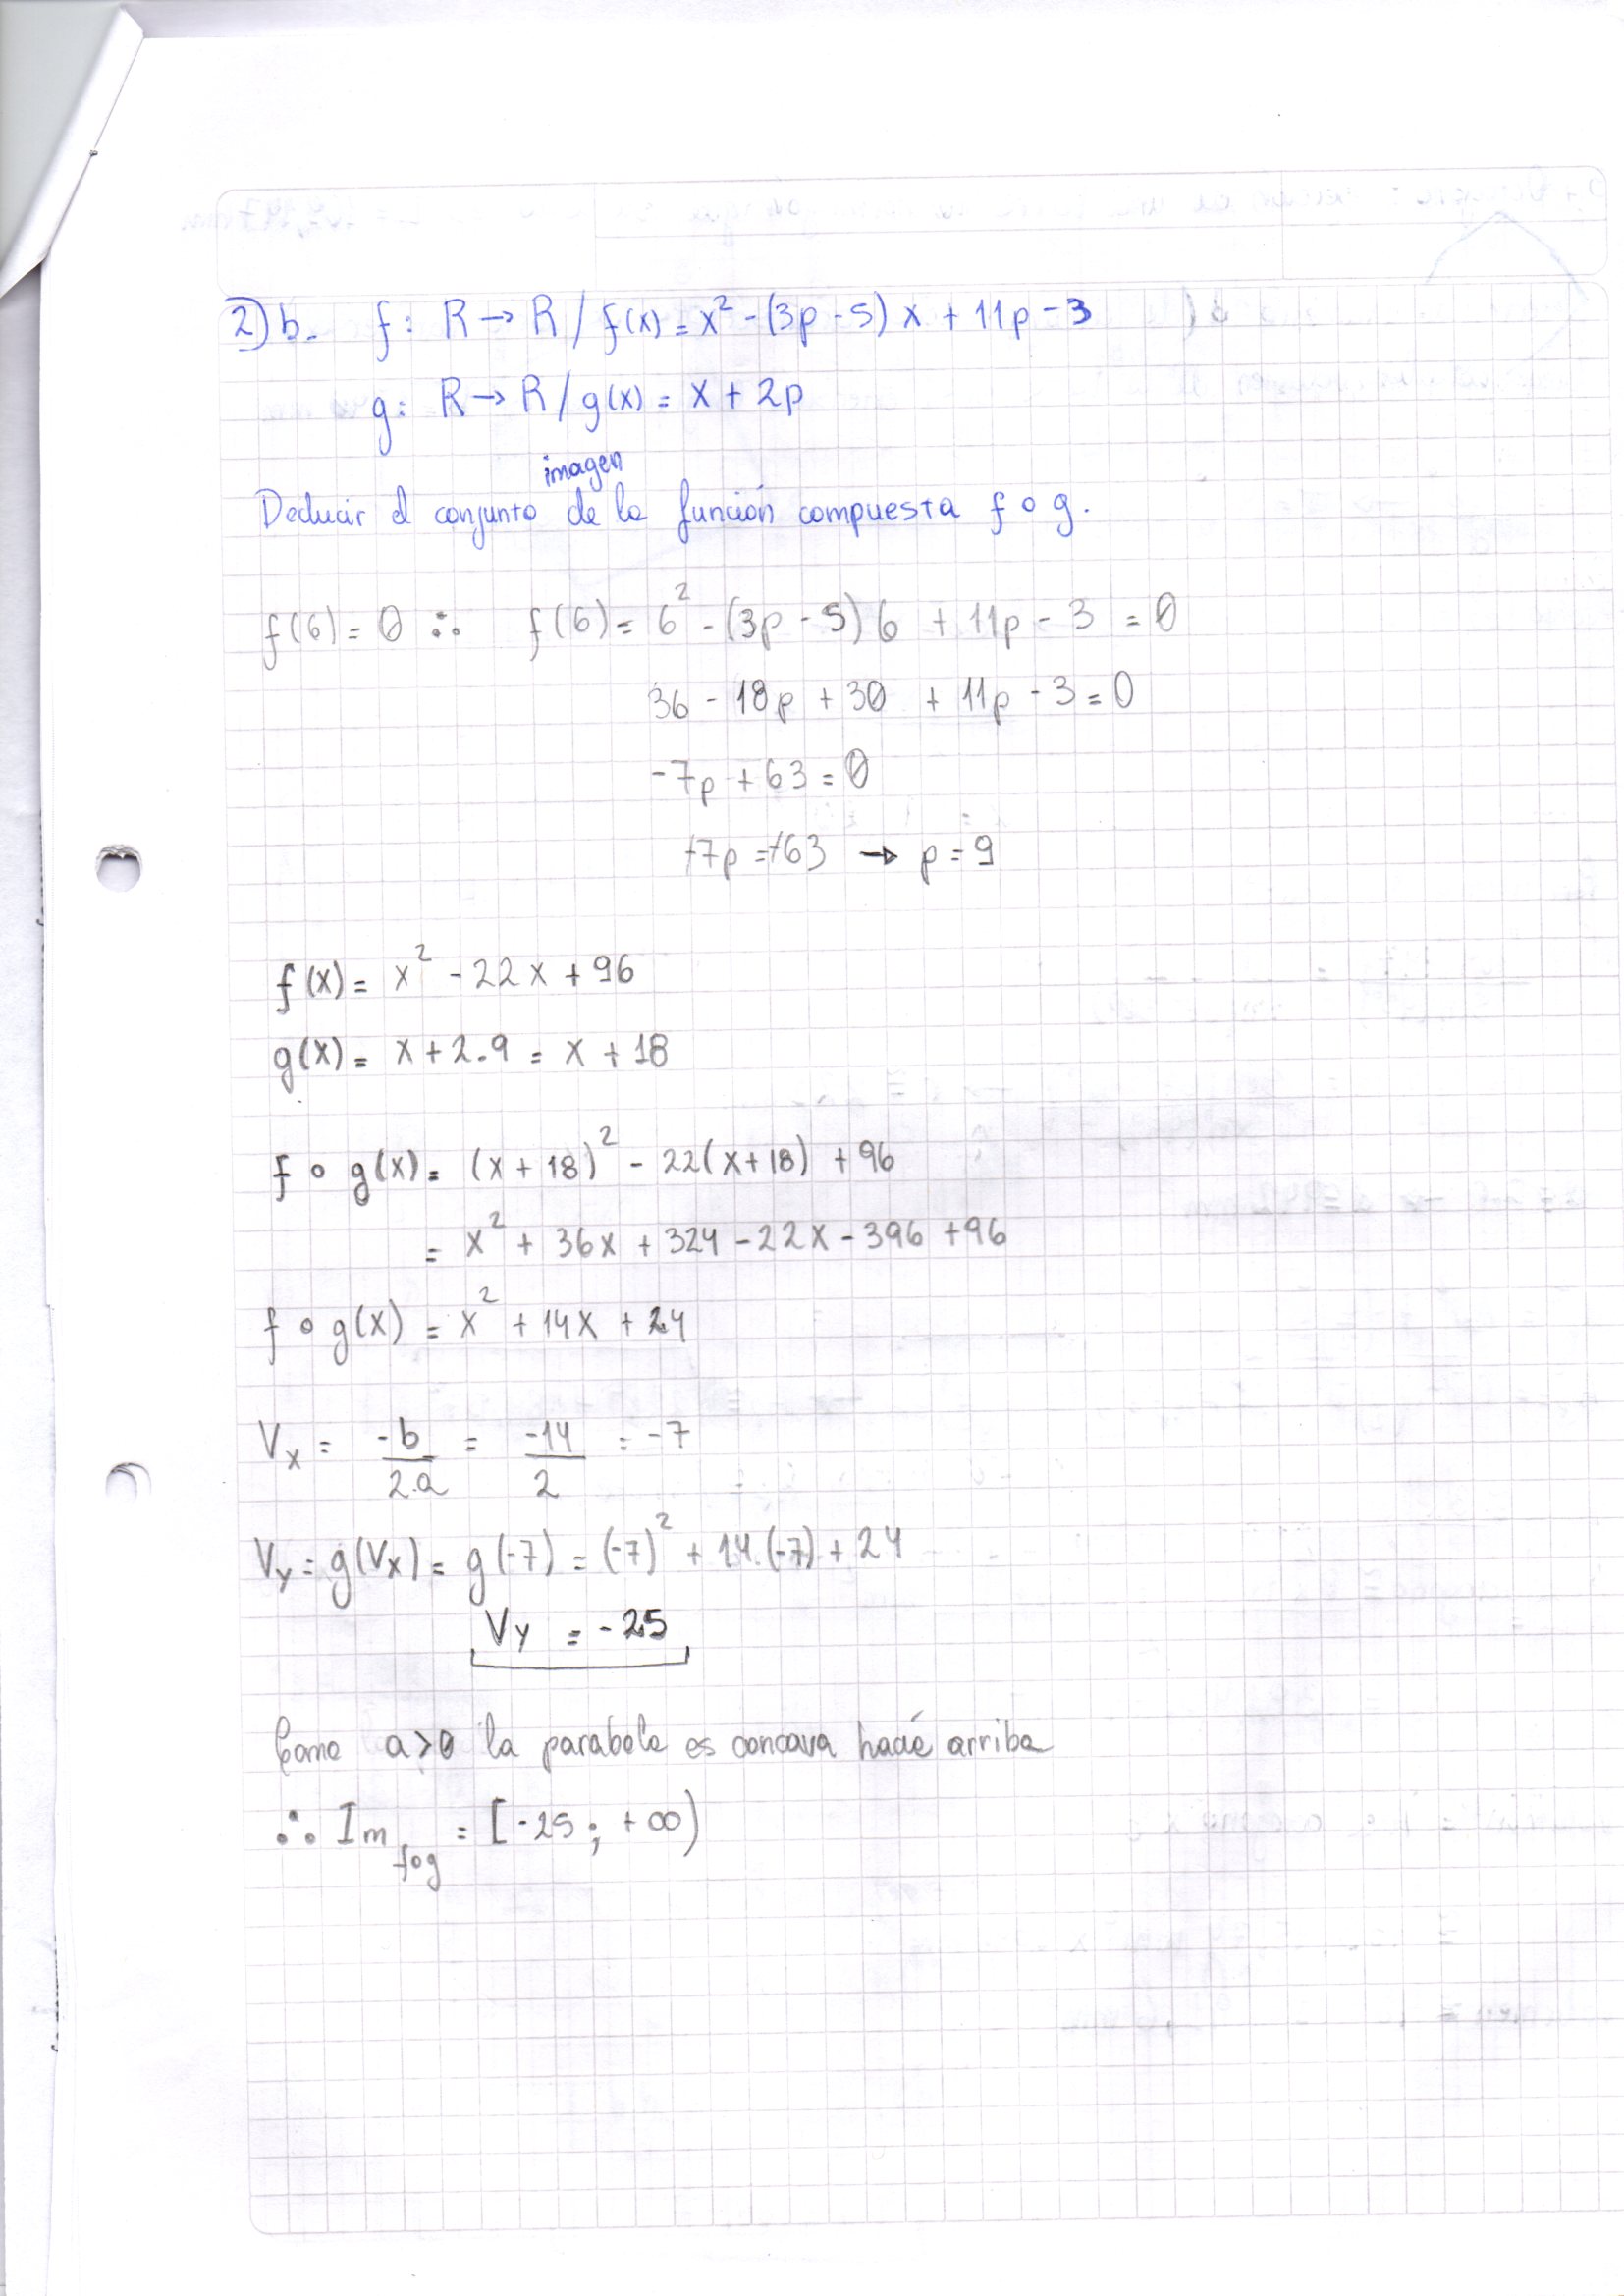 2) b. f: R → R / f(x) = x² - (3p - 5) x + 11p - 3
g: R → R / g(x) = x + 2p
imagen
Deducir el conjunto de la función compuesta f o g.
f(6) = 0 ∴ f(6) = 6² - (3p - 5) 6 + 11p - 3 = 0
36 - 18p + 30 + 11p - 3 = 0
-7p + 63 = 0
+7p = +63 → p = 9
f(x) = x² - 22x + 96
g(x) = x + 2.9 = x + 18
f o g(x) = (x + 18)² - 22(x + 18) + 96
= x² + 36x + 324 - 22x - 396 + 96
f o g(x) = x² + 14x + 24
Vx = -b/2.a = -14/2 = -7
Vy = g(Vx) = g(-7) = (-7)² + 14.(-7) + 24
Vy = -25
Como a > 0 la parabola es concava hacia arriba
∴ Im fog = [-25 ; +∞)